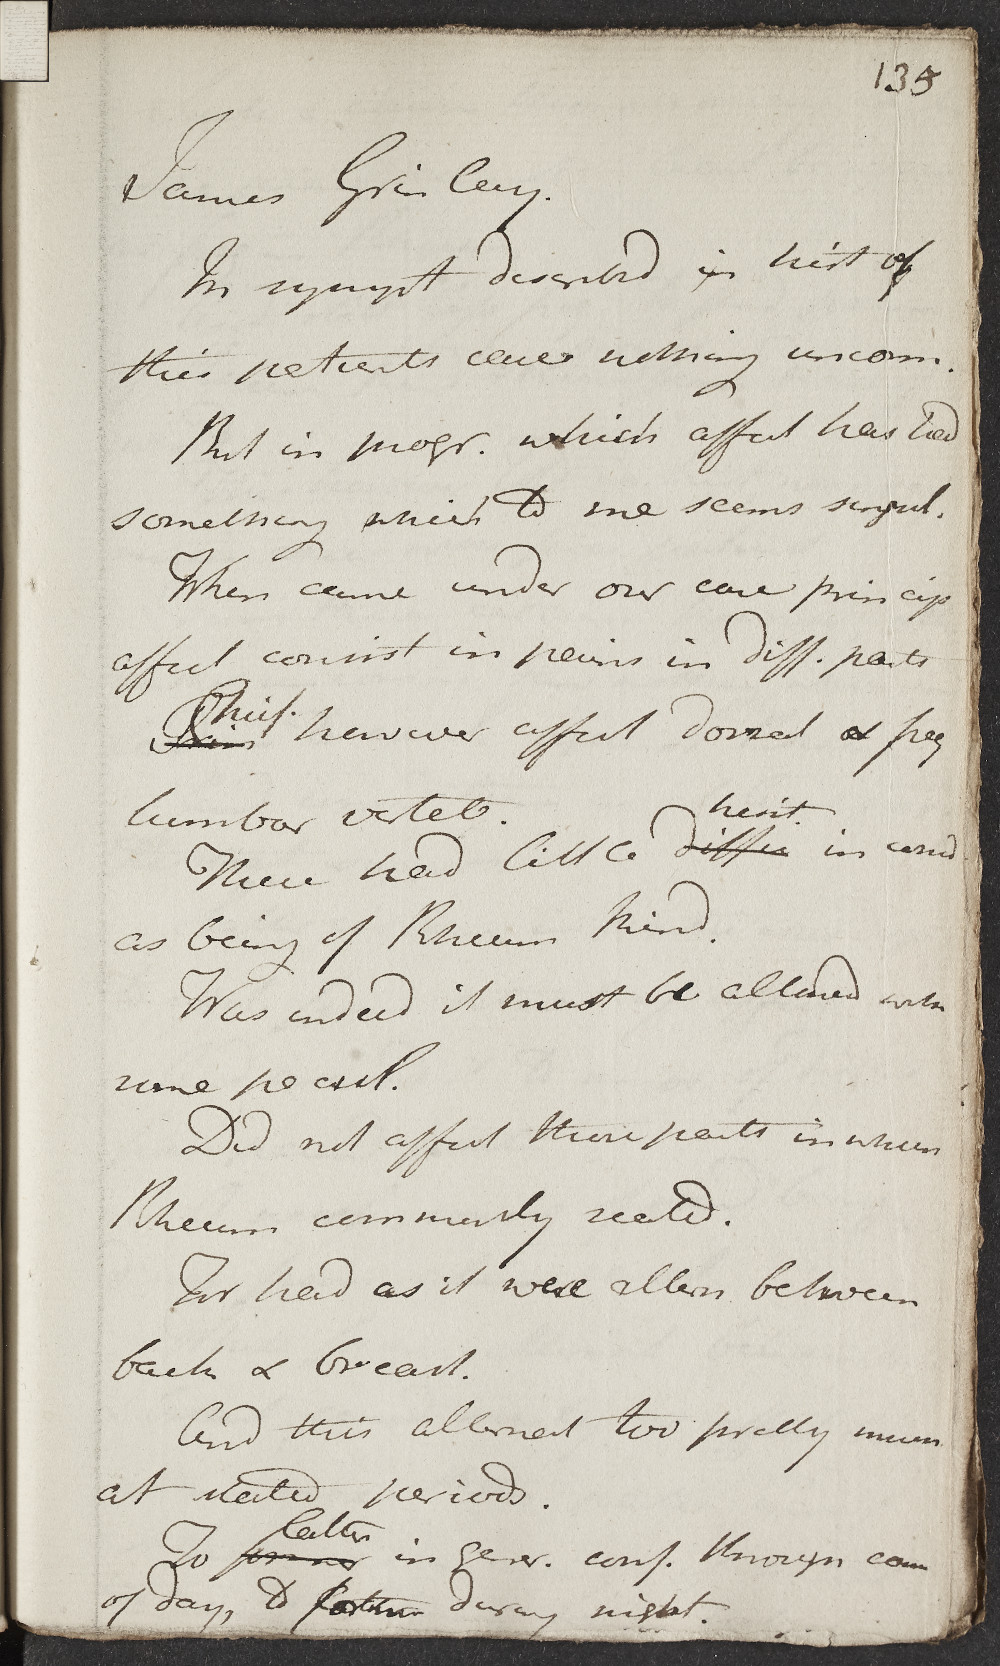 135
James Grinlay.
In sympt described in hist of
this patients case nothing uncom.
But in progr. which affect has had
something which to me seems singul.
When came under our care princip
affect consist in pains in diff. parts
Chief.
however affect dorsal &
lumbar verteb.
hesit.
There had little diffic in consid
as being of Rheum kind.
Was indeed it must be allowed with
some peculi.
Did not affect those parts in which
Rheum commonly seated.
For had as it were altern between
back & breast.
And this alternat too pretty much
at stated periods.
latter
To former in gener. conf. through cour
of day, to during night.